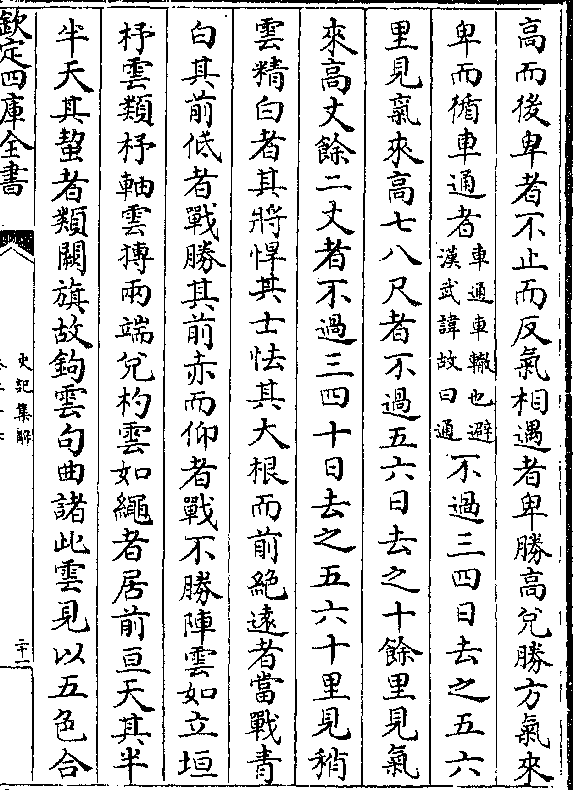 高而後卑者不止而反氣相遇者卑勝高兊勝方氣來
卑而循車通者
車通車轍也避
漢武諱故曰通
不過三四日去之五六
里見氣來高七八尺者不過五六日去之十餘里見氣
來高丈餘二丈者不過三四十日去之五六十里見稍
雲精白者其將悍其士怯其大根而前絶遠者當戰青
白其前低者戰勝其前赤而仰者戰不勝陣雲如立垣
杼雲類杼軸雲摶兩端兊杓雲如繩者居前亘天其半
半天其蛪者類闕旗故鉤雲句曲諸此雲見以五色合
欽定四庫全書
史記集解
二十一